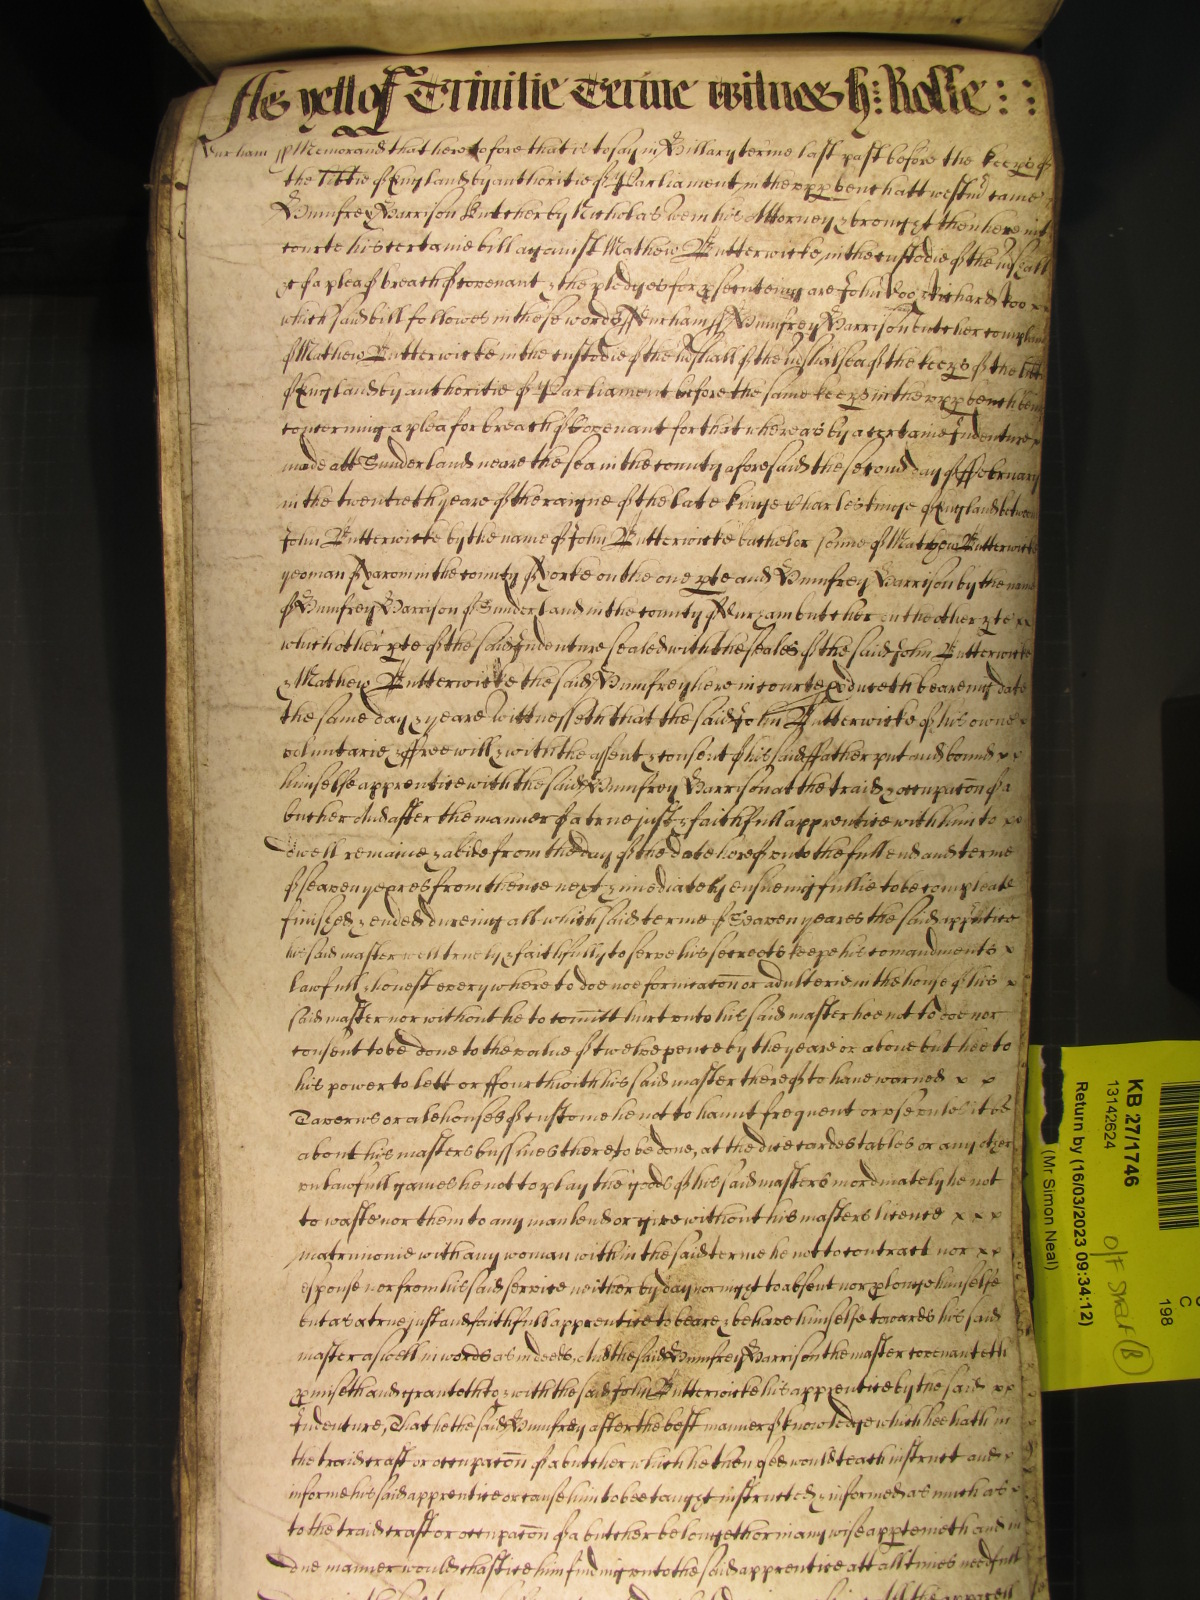 As yett of Trinitie Terme witnes H: Rolle : :
Durham ss Memorand that heretofore that is to say in Hillary terme last past before the keeps of
the libtie of England by authoritie of Parliament in the upp bench att westm came
Humfrey Harrison Butcher by Nicholas his Attorney & brought then here into
courte his certaine bill against Mathew Butterwicke, in the custodie of the mshall
&c of a plea of breach of covenant & the pledges for psecuteing are John Doo & Richard Roo x
which said bill followes in these words ss Durham ss Humfrey Harrison butcher complaines
of Mathew Butterwicke in the custodie of the mshall of the mshalsea of the keeps of the libtie
of England by authoritie of Parliament before the same keeps in the upp bench being
concerning a plea for breach of Covenant for that whereas by a certaine Indenture x
made att Sunderland neare the sea in the county aforesaid the second day of ffebruary
in the twentieth yeare of the raigne of the late kinge Charles kinge of England betweene
John Butterwicke by the name of John Butterwicke bachelor sonne of Mathew Butterwicke
yeoman of Yarom in the county of Yorke on the one pte and Humfrey Harrison by the name
of Humfrey Harrison of Sunderland in the county of Durham butcher on the other pte x x
which other pte of the said Indenture sealed with the seales of the said John Butterwicke
& Mathew Butterwicke the said Humfrey here in courte pduceth beareing date
the same day & yeare wittnesseth that the said John Butterwicke of his owne x
voluntarie & ffree will & with the assent & consent of his said ffather put and bound x x
himselfe apprentice with the said Humfrey Harrison at the traid & occupacon of a
butcher And after the manner of a true just & faithfull apprentice with him to x x
dwell remaine & abide from the day of the date hereof unto the full end and terme
of seaven yeares from thence next & imediately ensueing fullie to be compleate
finished & ended dureing all which said terme of Seaven yeares the said apprtice
his said master well truely & faithfully to serve his secreets keepe his comandments x
lawfull & honest every where to doe noe fornicacon or adulterie in the house of his x
said master nor without he to comitt hurt unto his said master hee not to doe nor
consent to be done to the value of twelve pence by the yeare or above but hee to
his power to lett or fforthwith his said master thereof to have warned x x
Taverns or alehouses of custome he not to haunt frequent or use unles it be
about his masters bussines there to be done, at the dice cardes tables or any other
unlawfull games he not to play the goods of his said masters inordinately he not
to waste nor them to any man lend or give without his masters licence x x x
matrimonie with any woman within the said terme he not to contract nor x x
espouse nor from his said service neither by day nor night to absent nor plonge himselfe
but as a true just and faithfull apprentice to beare & behave himselfe towards his said
master aswell in words as in deeds, And the said Humfrey Harrison the master covenanteth
pmiseth and granteth to & with the said John Butterwicke his apprentice by the said x x
Indenture, That he the said Humfrey after the best manner of knowledge which hee hath in
the traid craft or occupacon of a butcher which he then used would teach instruct and x
informe his said apprentice or cause him to bee taught instructed & informed as much as x
to the traid craft or occupacon of a butcher belongeth or in any wise apptemeth and in
due manner would chastice him finding unto the said apprentice att all times needfull
KB 27/1746
13142624
Return by (16/03/2023 09:34:12)
(Mr Simon Neal)
C
198